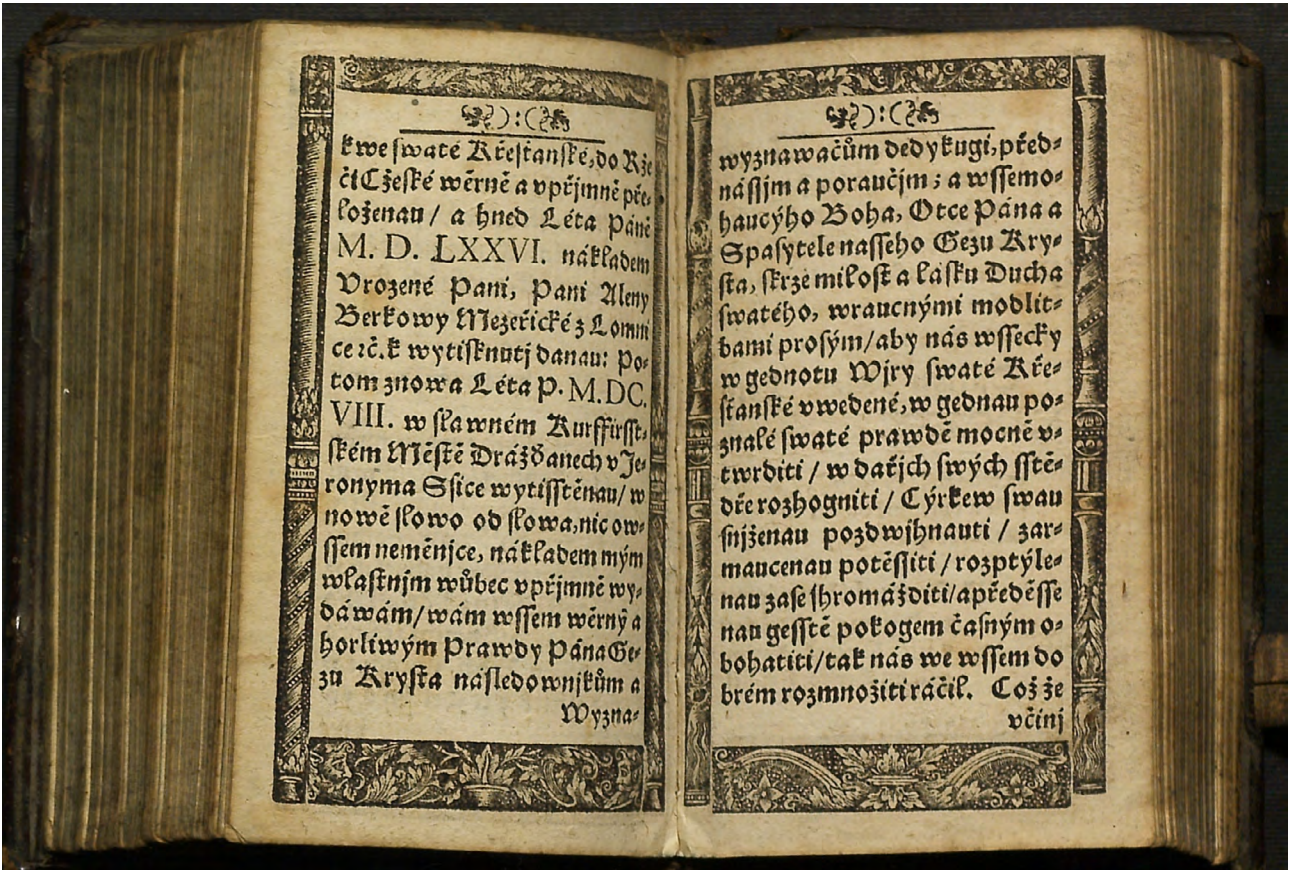 ):(
kwe swaté Křestanské, do Rže
či Cžeské wěrně a vpřjmně pře-
loženau / a hned Léta Páně
M. D. LXXVI. nákladem
Vrozené Pani, Pani Aleny
Berkowy Mezeřické z Lomni
ce ꝛč. k wytisknutj danau: Po-
tom znowa Léta P. M.DC.
VIII. w slawném Kurffirsst-
ském Městě Drážďanech v Je-
ronyma Ssice wytisstěnau / w
nowě slowo od slowa, nic ow-
ssem neměnjce, nákladem mým
wlastnjm wůbec vpřjmně wy-
dáwám / wám wssem wěrný a
horliwým Prawdy Pána Ge-
zu Krysta následownjkům a
Wyzna-
):(
wyznawačům dedykugi, před-
nássjm a poraučjm; a wssemo-
haucýho Boha, Otce Pána a
Spasytele nasseho Gezu Kry-
sta, skrze milost a lásku Ducha
swatého, wraucnými modlit-
bami prosým / aby nás wssecky
w gednotu Wjry swaté Kře-
stanské vwedené, w gednau po-
znalé swaté prawdě mocně v-
twrditi / w dařjch swých sstě-
dře rozhogniti / Cýrkew swau
snjženau pozdwjhnauti / zar-
maucenau potěssiti / rozptýle-
nau zase shromážditi / a předěsse
nau gesstě pokogem časným o-
bohatiti / tak nás we wssem do
brém rozmnožiti ráčil. Což že
včinj